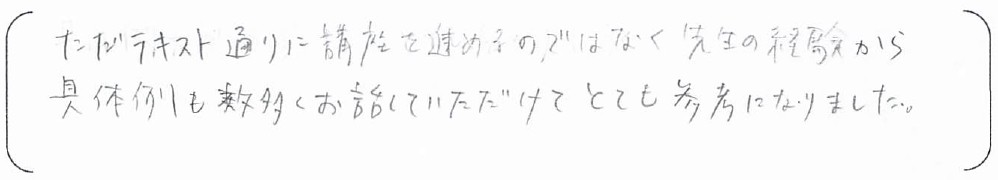 ただテキスト通りに講座を進めるのではなく先生の経験から
具体例も数多くお話していただけてとても参考になりました。